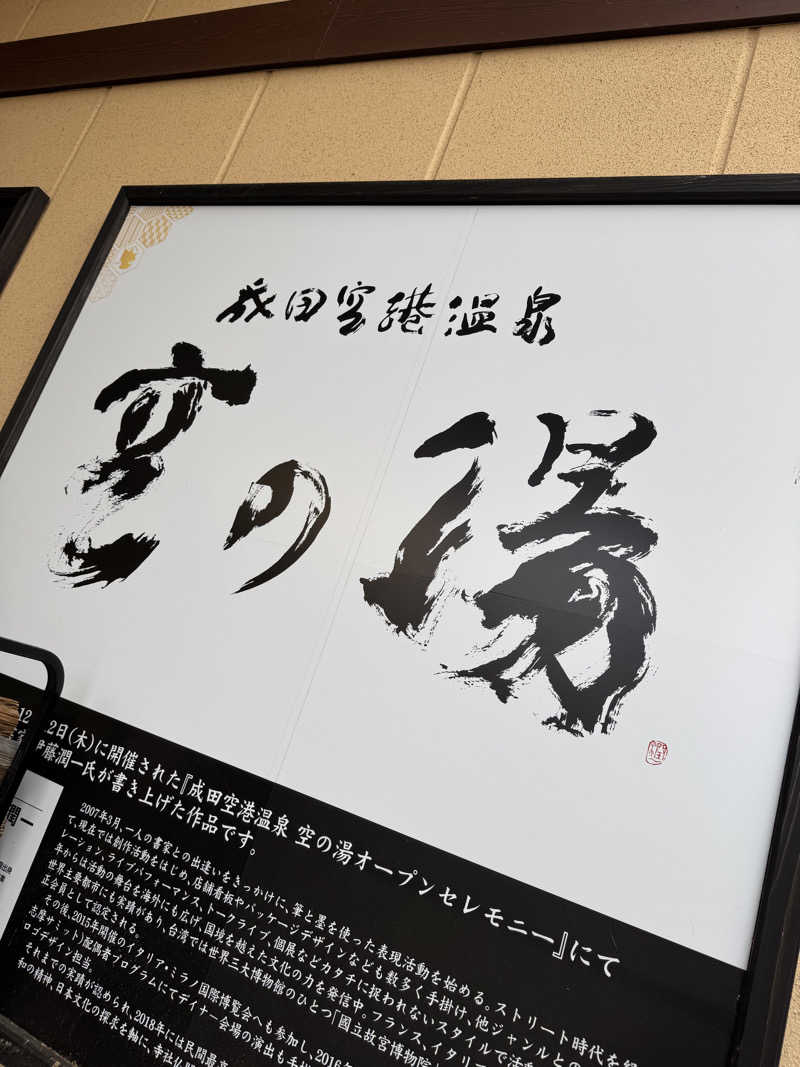 成田空港温泉
空の湯
2日(木)に開催された『成田空港温泉 空の湯オープンセレモニー』にて
伊藤潤一氏が書き上げた作品です。
2007年3月、一人の書家との出逢いをきっかけに、筆と墨を使った表現活動を始める。ストリート時代を経
て、現在では創作活動をはじめ、店舗看板やパッケージデザインなども数多く手掛け、他ジャンルとの
レーション、ライブパフォーマンス、トークライブ、個展などカタチに捉われないスタイルで活
年からは活動の舞台を海外にも広げ、国境を越えた文化の力を発信中。フランス、イタリー
世界主要都市にも実績があり、台湾では世界三大博物館のひとつ「國立故宮博物院
正会員として認定される。
その後、2015年開催のイタリア・ミラノ国際博覧会へも参加し、2016年
志摩サミット)配偶者プログラムにてディナー会場の演出も手
ロゴデザイン担当。
それまでの実績が認められ、2018年には民間最
和の精神、日本文化の探求を軸に、寺社仏
潤一